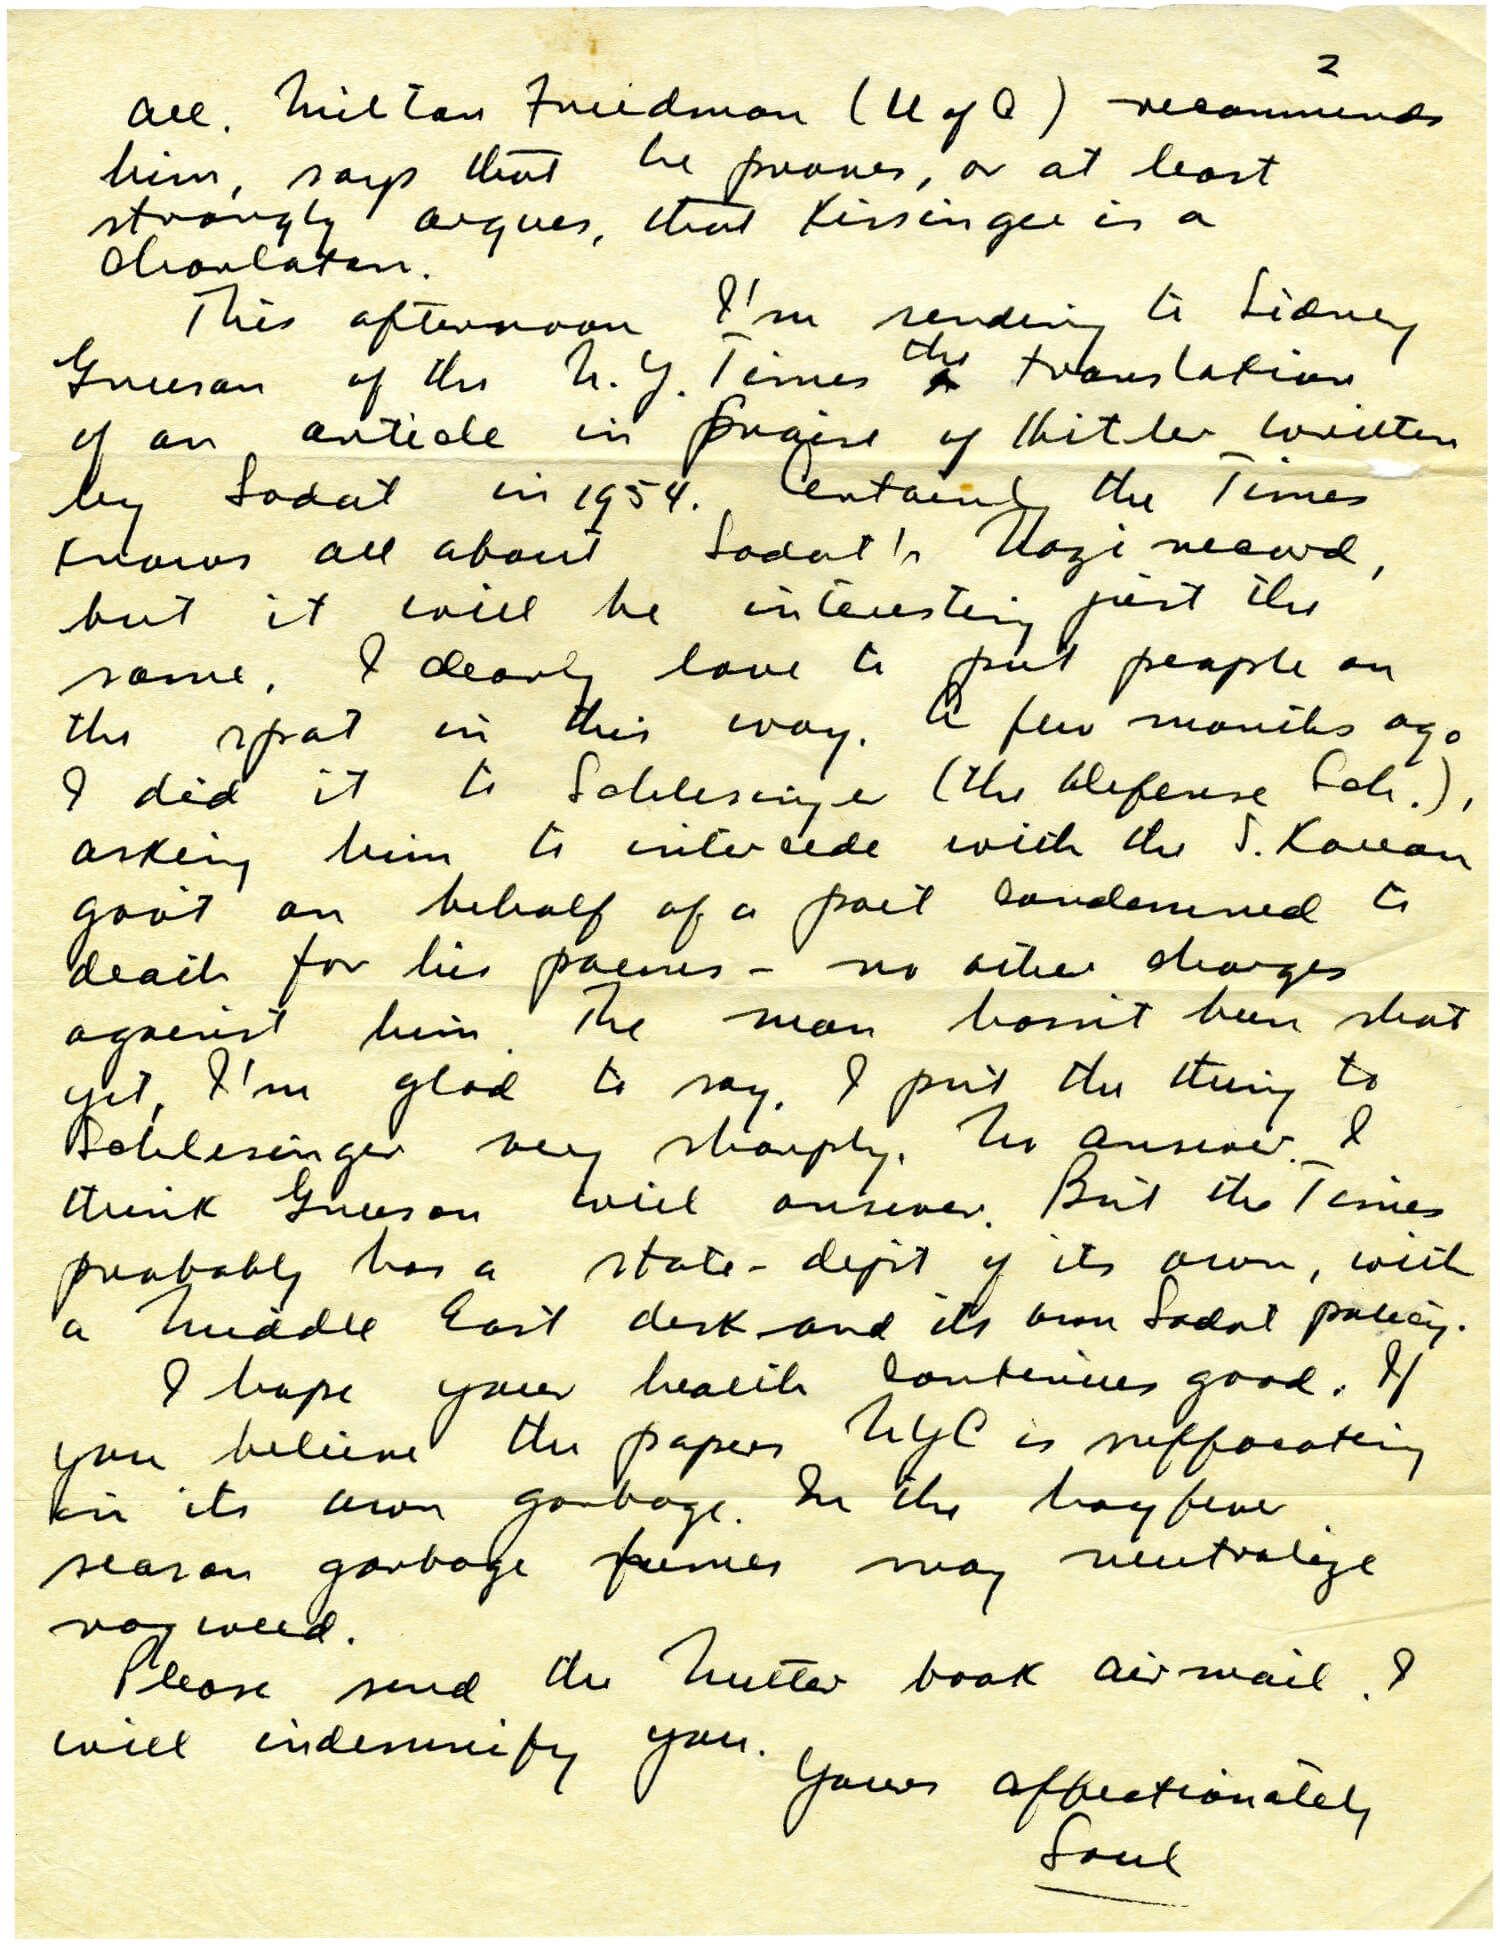 2
all. Milton Friedman (U of C) recommends
him, says that he proves, or at least
strongly argues, that Kissinger is a
charlatan.
This afternoon I'm sending to Sidney
Gruson of the N.Y. Times the translation
of an article in praise of Hitler written
by Sadat in 1954. Certainly the Times
knows all about Sadat's Nazi record,
but it will be interesting just the
same. I dearly love to put people on
the spot in this way. A few months ago
I did it to Schlesinger (the Defense Sch.),
asking him to intercede with the S. Korean
gov't on behalf of a poet condemned to
death for his poems - no other charges
against him. The man hasn't been shot
yet, I'm glad to say. I put the thing to
Schlesinger very sharply. No answer. I
think Gruson will answer. But the Times
probably has a state-dep't of its own, with
a Middle East desk and its own Sadat policy.
I hope your health continues good. If
you believe the papers NYC is suffocating
in its own garbage. In the hayfever
season garbage fumes may neutralize
ragweed.
Please send the book airmail. I
will indemnify you.
Yours affectionately
Saul